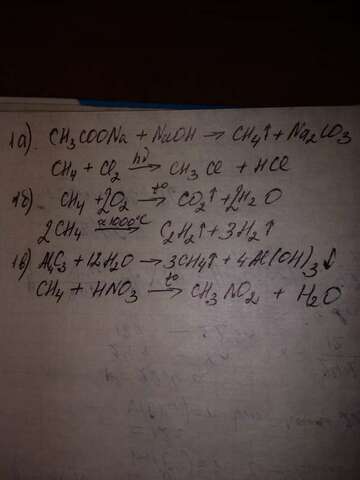 1а). CH₃COONa + NaOH → CH₄↑ + Na₂CO₃
CH₄ + Cl₂ hν→ CH₃Cl + HCl
1б) CH₄ + 2O₂ t°→ CO₂↑ + 2H₂O
2CH₄ ≈1000°C→ C₂H₂↑ + 3H₂↑
1в) Al₄C₃ + 12H₂O → 3CH₄↑ + 4Al(OH)₃↓
CH₄ + HNO₃ t°→ CH₃NO₂ + H₂O